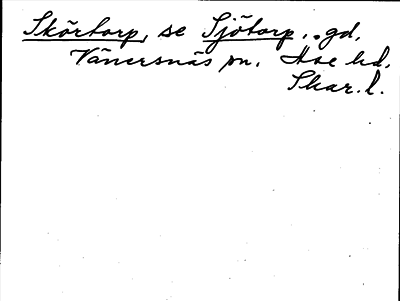 Skörtorp, se Sjötorp, gd,
Vänersnäs sn. Åse hd.
Skar. l.